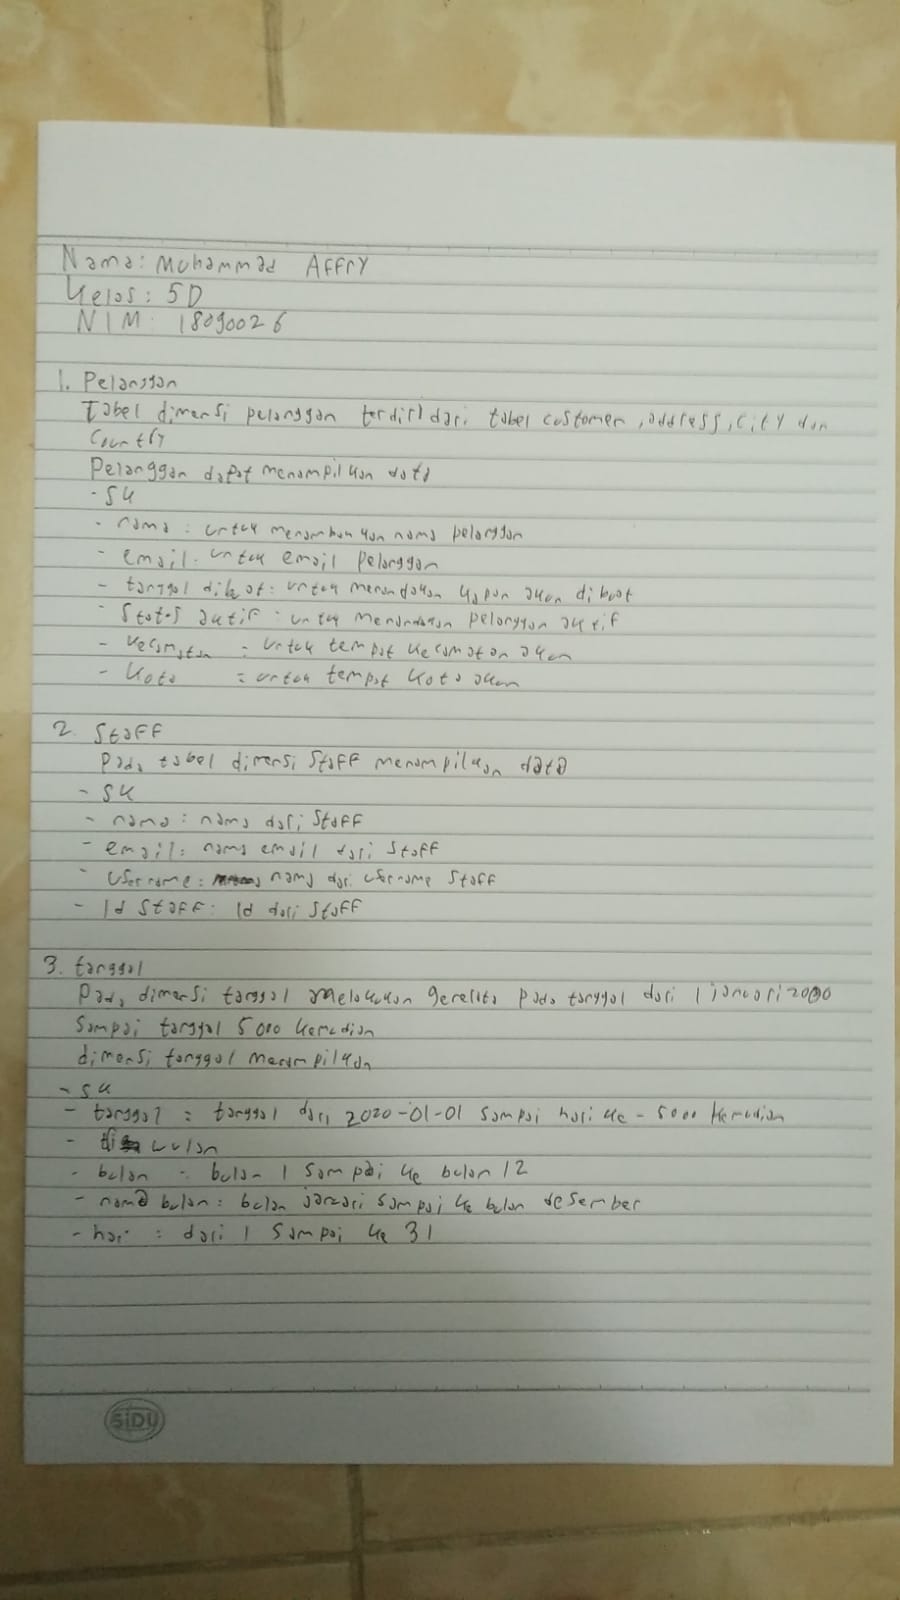 Nama: Muhammad Affry
Kelas: 5D
NIM: 18090026
1. Pelanggan
Tabel dimensi pelanggan terdiri dari tabel customer, address, city dan
Country
Pelanggan dapat menampilkan data
- SK
- nama : untuk menambahkan nama pelanggan
- email: untuk email pelanggan
- tanggal dibuat: untuk menandakan kapan akun dibuat
- Status aktif : untuk menandakan pelanggan aktif
- kecamatan = untuk tempat kecamatan akun
- Kota = untuk tempat kota akun
2. Staff
Pada tabel dimensi Staff menampilkan data
- SK
- nama : nama dari Staff
- email: nama email dari Staff
- Username: nama dari username Staff
- Id Staff: Id dari Staff
3. tanggal
Pada dimensi tanggal melakukan pada tanggal dari 1 januari 2000
Sampai tanggal 5000 kemudian
dimensi tanggal menampilkan
- SK
- tanggal = tanggal dari 2020-01-01 sampai hari ke - 5000 kemudian
-
- bulan : bulan 1 sampai ke bulan 12
- nama bulan: bulan januari sampai ke bulan desember
- hari : dari 1 sampai ke 31
SiDU